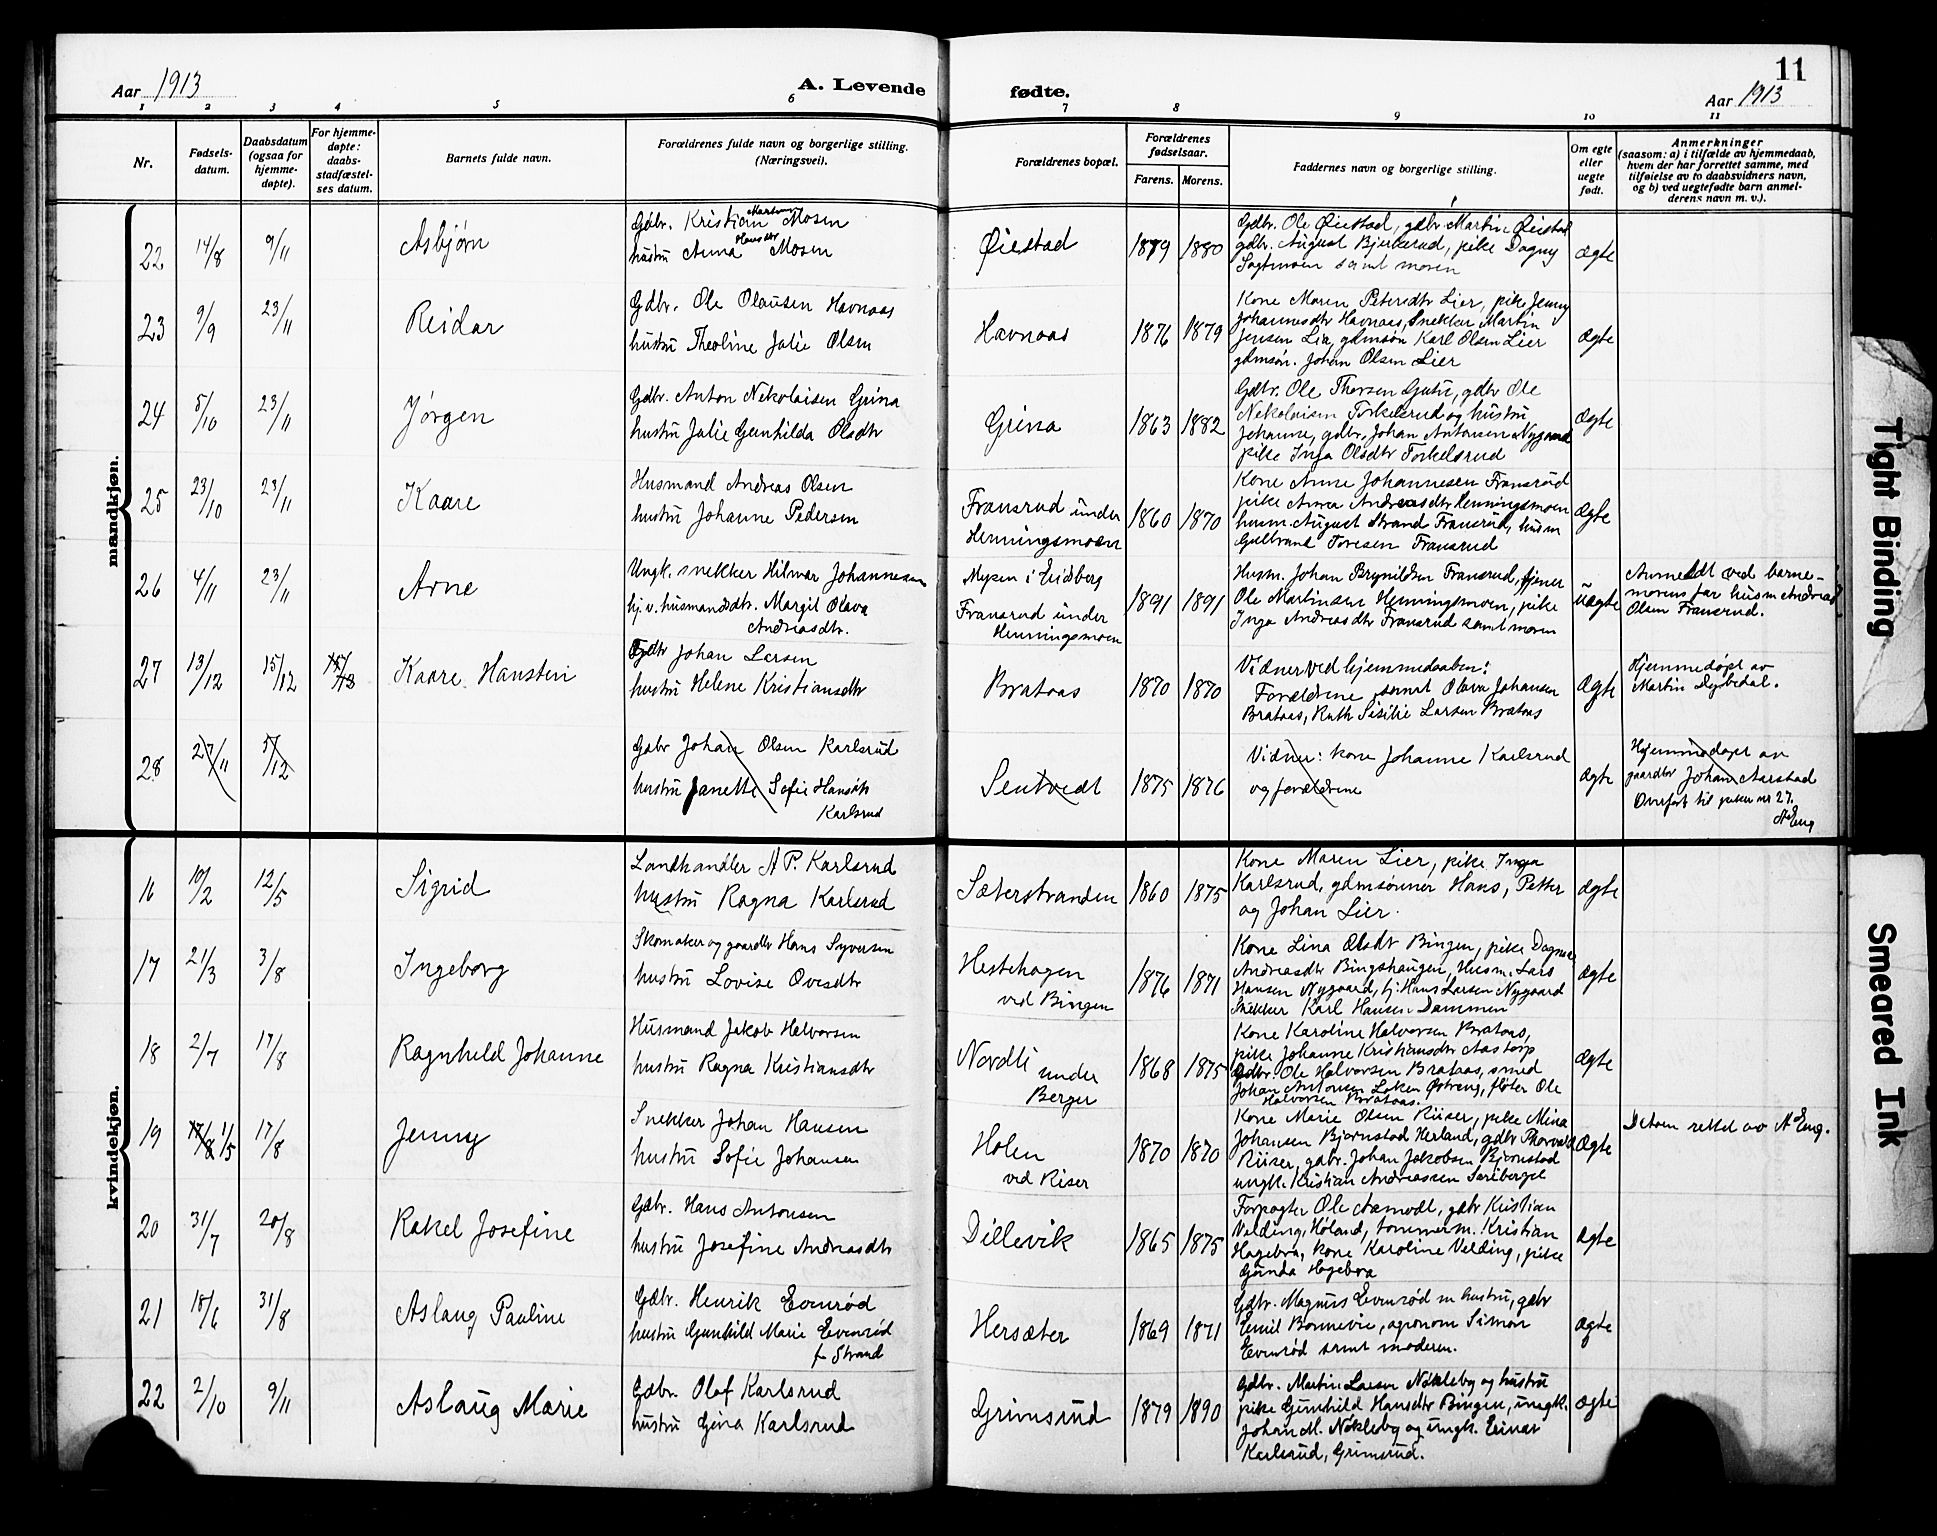 Aar 1913
A. Levende
fødte.
11
Aar 1913
1 2 3 4 5 6 7 8 9 10 11
Nr.
Fødsels-
datum.
Daabsdatum
(ogsaa for
hjemme-
døpte).
For hjemme-
døpte:
daabs-
stadfæstel-
ses datum.
Barnets fulde navn.
Forældrenes fulde navn og borgerlige stilling.
(Næringsvei).
Forældrenes bopæl.
Forældrenes
fødselsaar.
Farens. Morens.
Faddernes navn og borgerlige stilling.
Om egte
eller
uegte
født.
Anmerkninger
(saasom: a) i tilfælde av hjemmedaab,
hvem der har forrettet samme, med
tilføielse av to daabsvidners navn,
og b) ved uegtefødte barn anmel-
derens navn m. v.).
mandkjøn.
22 14/8 9/11 Asbjørn
Gdbr. Kristian Martin Mosen
hustru Anna Hansdtr Mosen
Øiestad 1879 1880
Gdbr. Ole Øiestad, gdbr Martin Øiestad
gdbr. August Bjerkerud, pike Dagny
Sagtmoen samt moren
ægte
23 9/9 23/11 Reidar
Gdbr. Ole Olausen Havnaas
hustru Theoline Julie Olsen
Havnaas 1876 1879
Kone Maren Petersdtr Lier, pike Jenny
Johannesdtr Havnaas, Snekker Martin
Jensen Lia, gdmsøn Karl Olsen Lier
gdmsøn. Johan Olsen Lier
ægte
24 5/10 23/11 Jørgen
Gdbr. Anton Nekolaisen Grina
hustru Julie Gunhilda Olsdtr
Grina 1863 1882
Gdbr. Ole Thorsen, gdbr Ole
Nekolaisen Torkelsrud og hustru
Johanne, gdbr. Johan Antonsen Nygaard
pike Inga Olsdtr Torkelsrud
ægte
25 23/10 23/11 Kaare
Husmand Andreas Olsen
hustru Johanne Pedersen
Fransrud under
Henningsmoen
1860 1870
Kone Anne Johannesen Fransrud
pike Anna Andreasdtr Henningsmoen
husm. August Strand Fransrud, husm
Gulbrand Toresen Fransrud
ægte
26 4/11 23/11 Arne
Ungk. snekker Hilmar Johannesen
hj.v. husmandsdtr. Margit Olava
Andreasdtr.
Mysen i Eidsberg
Fransrud under
Henningsmoen
1891 1891
Husm. Johan Brynildsen Fransrud, tjener
Ole Martinsen Henningsmoen, pike
Inga Andreasdtr Fransrud samt moren
uægte
Anmeldt ved barne-
morens far husm Andreas
Olsen Fransrud.
27 13/12 15/12 Kaare Hanstin
Gdbr Johan Larsen
hustru Helene Kristiansdtr
Brataas 1870 1870
Vidner ved hjemmedaaben:
Forældrene samt Olava Johansen
Brataas, Ruth Sisilie Larsen Brataas
ægte
Hjemmedøpt av
Martin Dybedal.
28 27/11 5/12
Gdbr Johan Olsen Karlsrud
hustru Janette Sofie Hansdtr
Karlsrud
Sentvedt 1875 1876
Vidner: kone Johanne Karlsrud
og forældrene
ægte
Hjemmedøpt av
gaardbr Johan Aarstad
Overført til piker nr 27.
A Eng
kvindekjøn.
16 10/2 12/5 Sigrid
Landhandler A P. Karlsrud
hustru Ragna Karlsrud
Sæterstranden 1860 1875
Kone Maren Lier, pike Inga
Karlsrud, gdmsønner Hans, Petter
og Johan Lier.
ægte
17 21/3 3/8 Ingeborg
Skomaker og gaardbr Hans Syversen
hustru Lovise Ovesdtr
Hestehagen
ved Bingen
1876 1871
Kone Lina Olsdtr Bingen, pike Dagmar
Andreasdtr Bingshaugen, Husm. Lars
Hansen Nygaard, hj. Hans Larsen Nygaard
Snekker Karl Hansen Dammen
ægte
18 2/7 17/8 Ragnhild Johanne
Husmand Jakob Halvorsen
hustru Ragna Kristiansdtr
Nordli under
Berger
1868 1875
Kone Karoline Halvorsen Brataas,
pike Johanne Kristiansdtr Aastorp
Gdbr. Ole Halvorsen Brataas, smed
Johan Antonsen Løken Østreng, fløter Ole
Halvorsen Brataas.
ægte
19 17/8 1/5 17/8 Jenny
Snekker Johan Hansen
hustru Sofie Johansen
Holen
ved Riser
1870 1870
Kone Marie Olsen Riiser, pike Mina
Johansen Bjørnstad Herland, gdbr Thorvald
Riiser, gdbr. Johan Jakobsen Bjørnstad
ungk. Kristian Andreassen
ægte
Datoen rettet av A Eng.
20 31/7 20/8 Rakel Josefine
Gdbr. Hans Antonsen
hustru Josefine Andreasdtr
Dillevik 1865 1875
Forpagter Ole Aamodt, gdbr Kristian
Velding, Høland, tømmerm. Kristian
Hagebra, kone Karoline Velding, pike
Gunda Hagebra
ægte
21 18/6 31/8 Aslaug Pauline
Gdbr. Henrik Evenrød
hustru Gunhild Marie Evenrød
f. Strand
Hersæter 1869 1871
Gdbr. Magnus Evenrød m hustru, gdbr
Emil Bonnevie, agronom Simon
Evenrød samt moderen.
ægte
22 2/10 9/11 Aslaug Marie
Gdbr. Olaf Karlsrud
hustru Gina Karlsrud
Grimsrud 1879 1890
Gdbr. Martin Larsen Nøkleby og hustru
pike Gunhild Hansdtr Bingen, ungk.
Johan M. Nøkleby og ungk. Einar
Karlsrud, Grimsrud.
ægte
Tight Binding
Smeared Ink